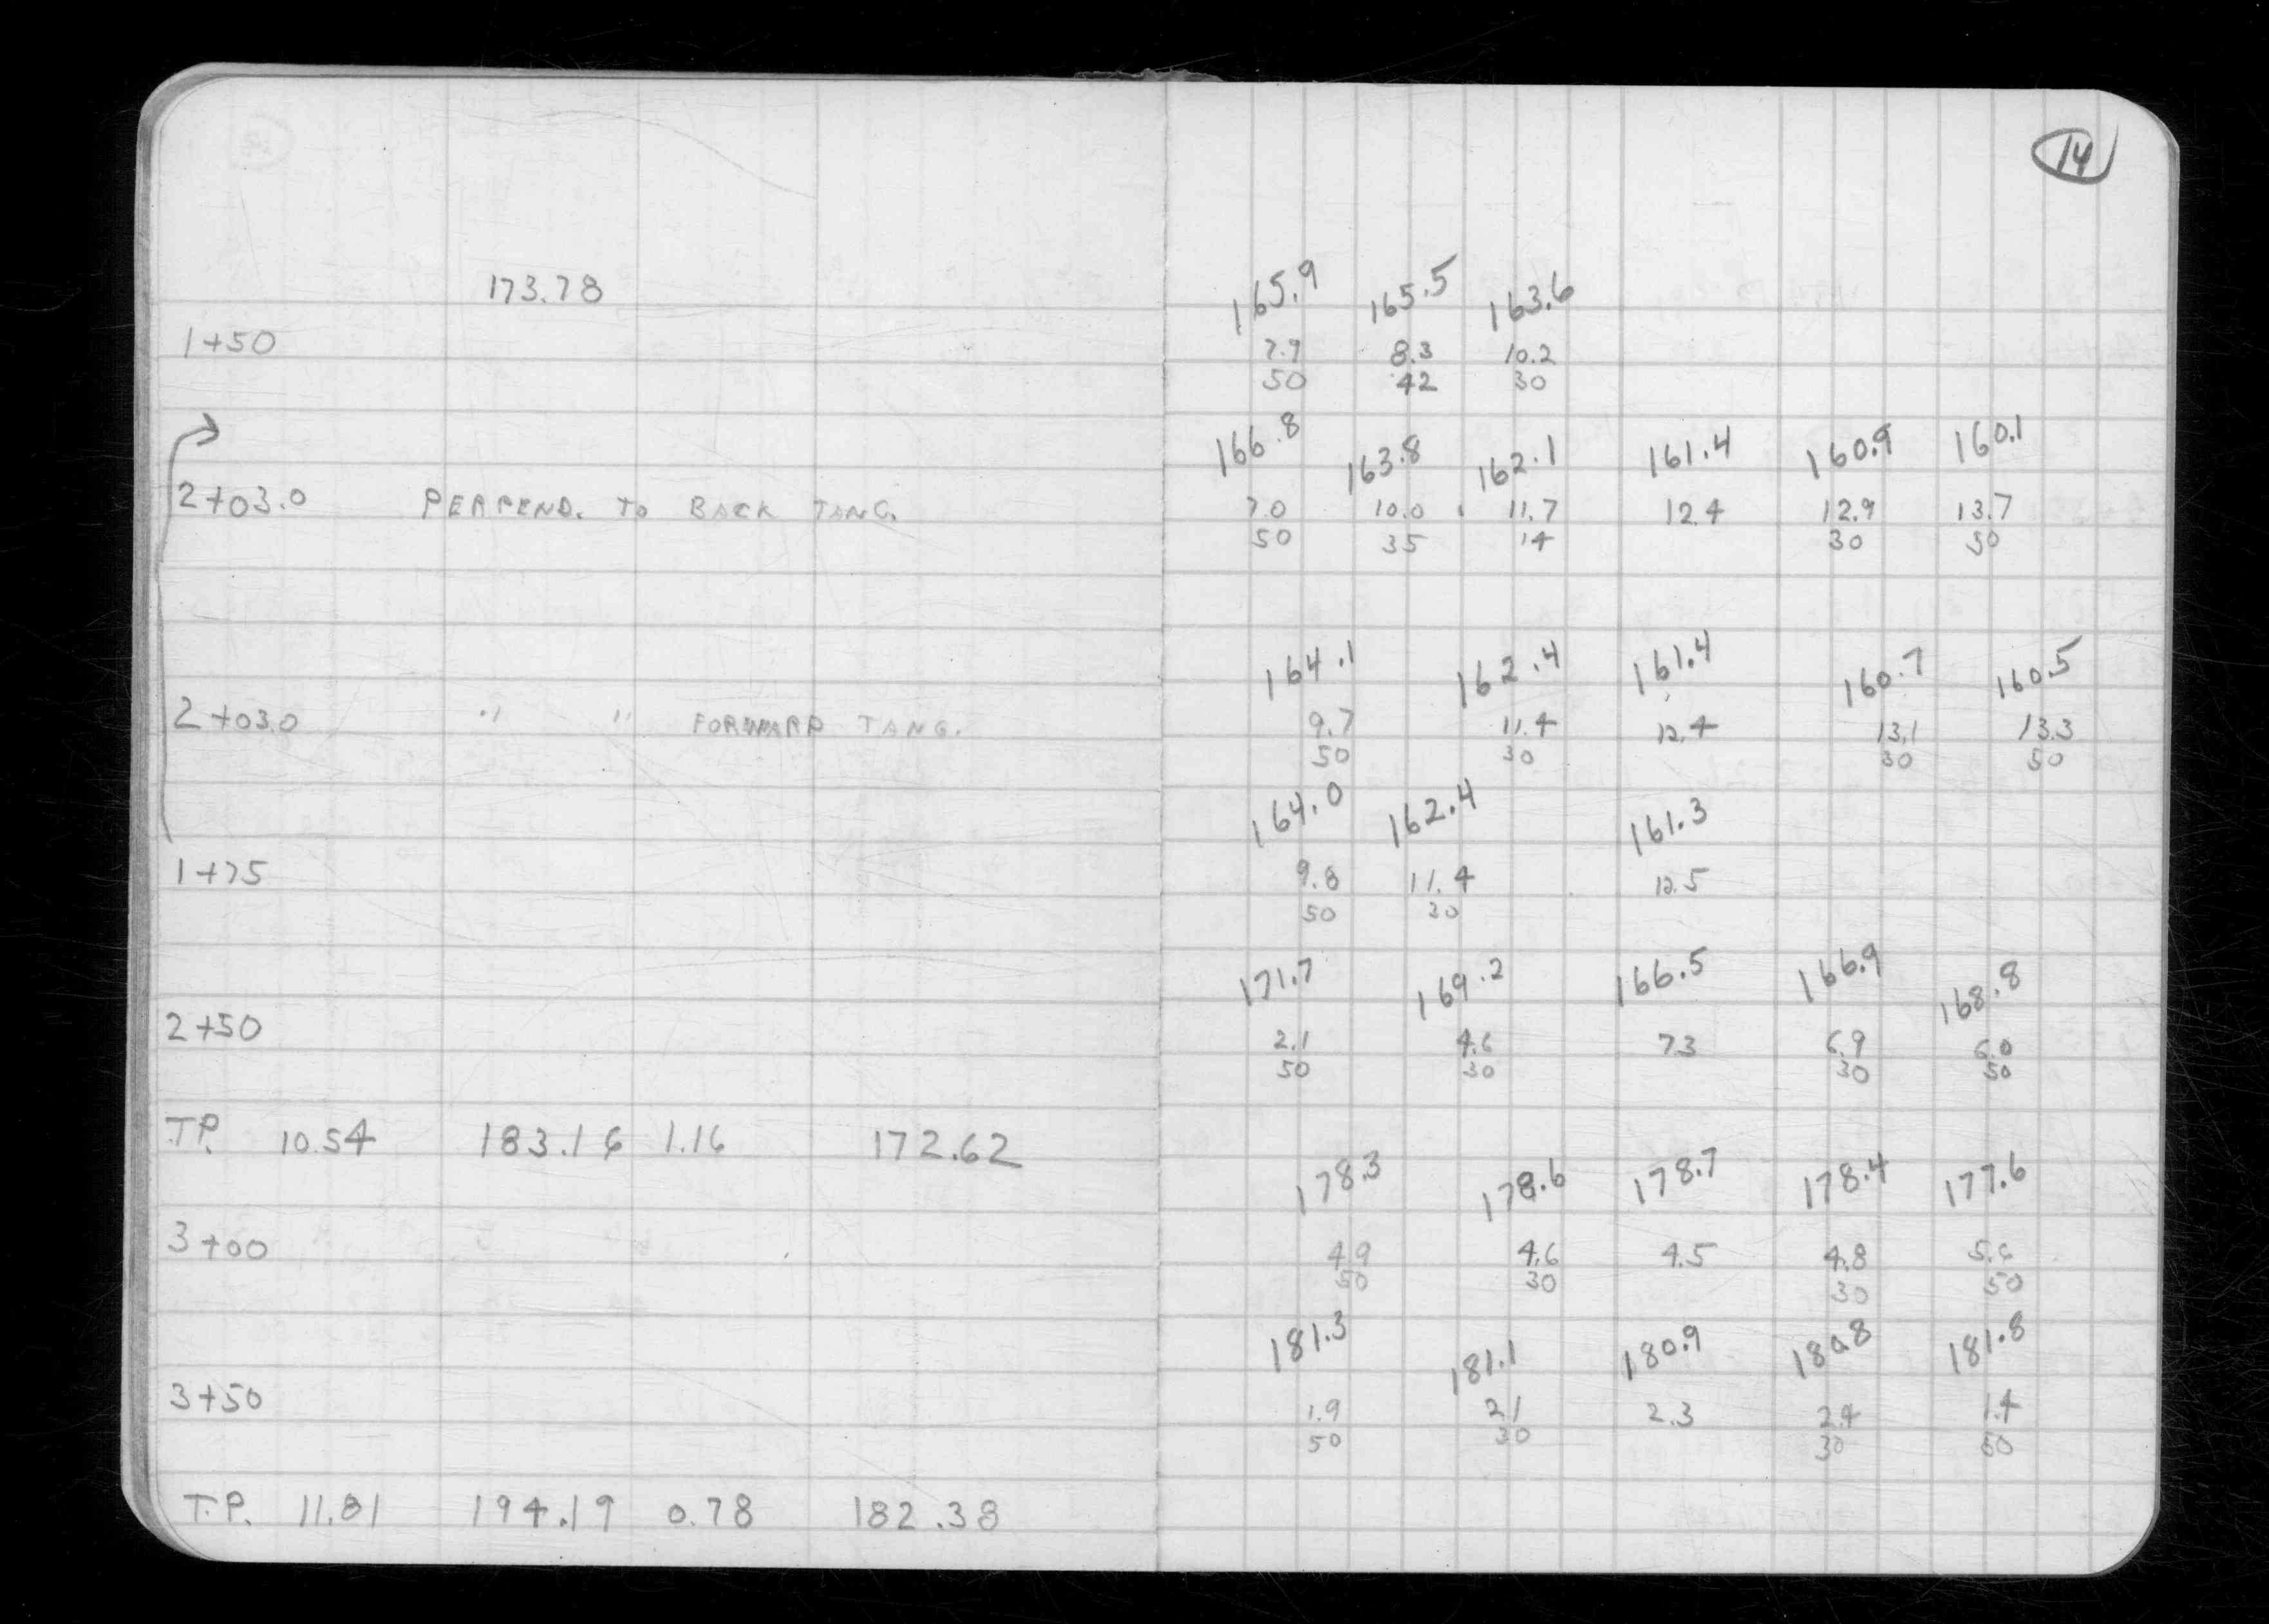 14
173.78
165.9 165.5 163.6
1+50 7.9 8.3 10.2
50 42 30
166.8 163.8 162.1 161.4 160.9 160.1
2+03.0 PERPEND. TO BACK TANG. 7.0 10.0 11.7 12.4 12.9 13.7
50 35 14 30 50
164.1 162.4 161.4 160.7 160.5
2+03.0 " " FORWARD TANG. 9.7 11.4 12.4 13.1 13.3
50 30 30 50
164.0 162.4 161.3
1+75 9.8 11.4 12.5
50 30
171.7 169.2 166.5 166.9 168.8
2+50 2.1 4.6 7.3 6.9 5.0
50 30 30 50
T.P. 10.54 183.16 1.16 172.62
178.3 178.6 178.7 178.4 177.6
3+00 4.9 4.6 4.5 4.8 5.6
50 30 30 50
181.3 181.1 180.9 180.8 181.8
3+50 1.9 2.1 2.3 2.4 1.4
50 30 30 50
T.P. 11.81 194.19 0.78 182.38